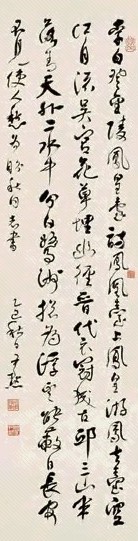 李白登金陵鳳皇臺詩鳳凰臺上鳳皇游鳳去臺空
江自流吳宮花草埋幽徑晉代衣冠成古邱三山半
落青天外二水中分白鷺洲總為浮雲能蔽日長安
不見使人愁 秋同志書 乙巳 尹默